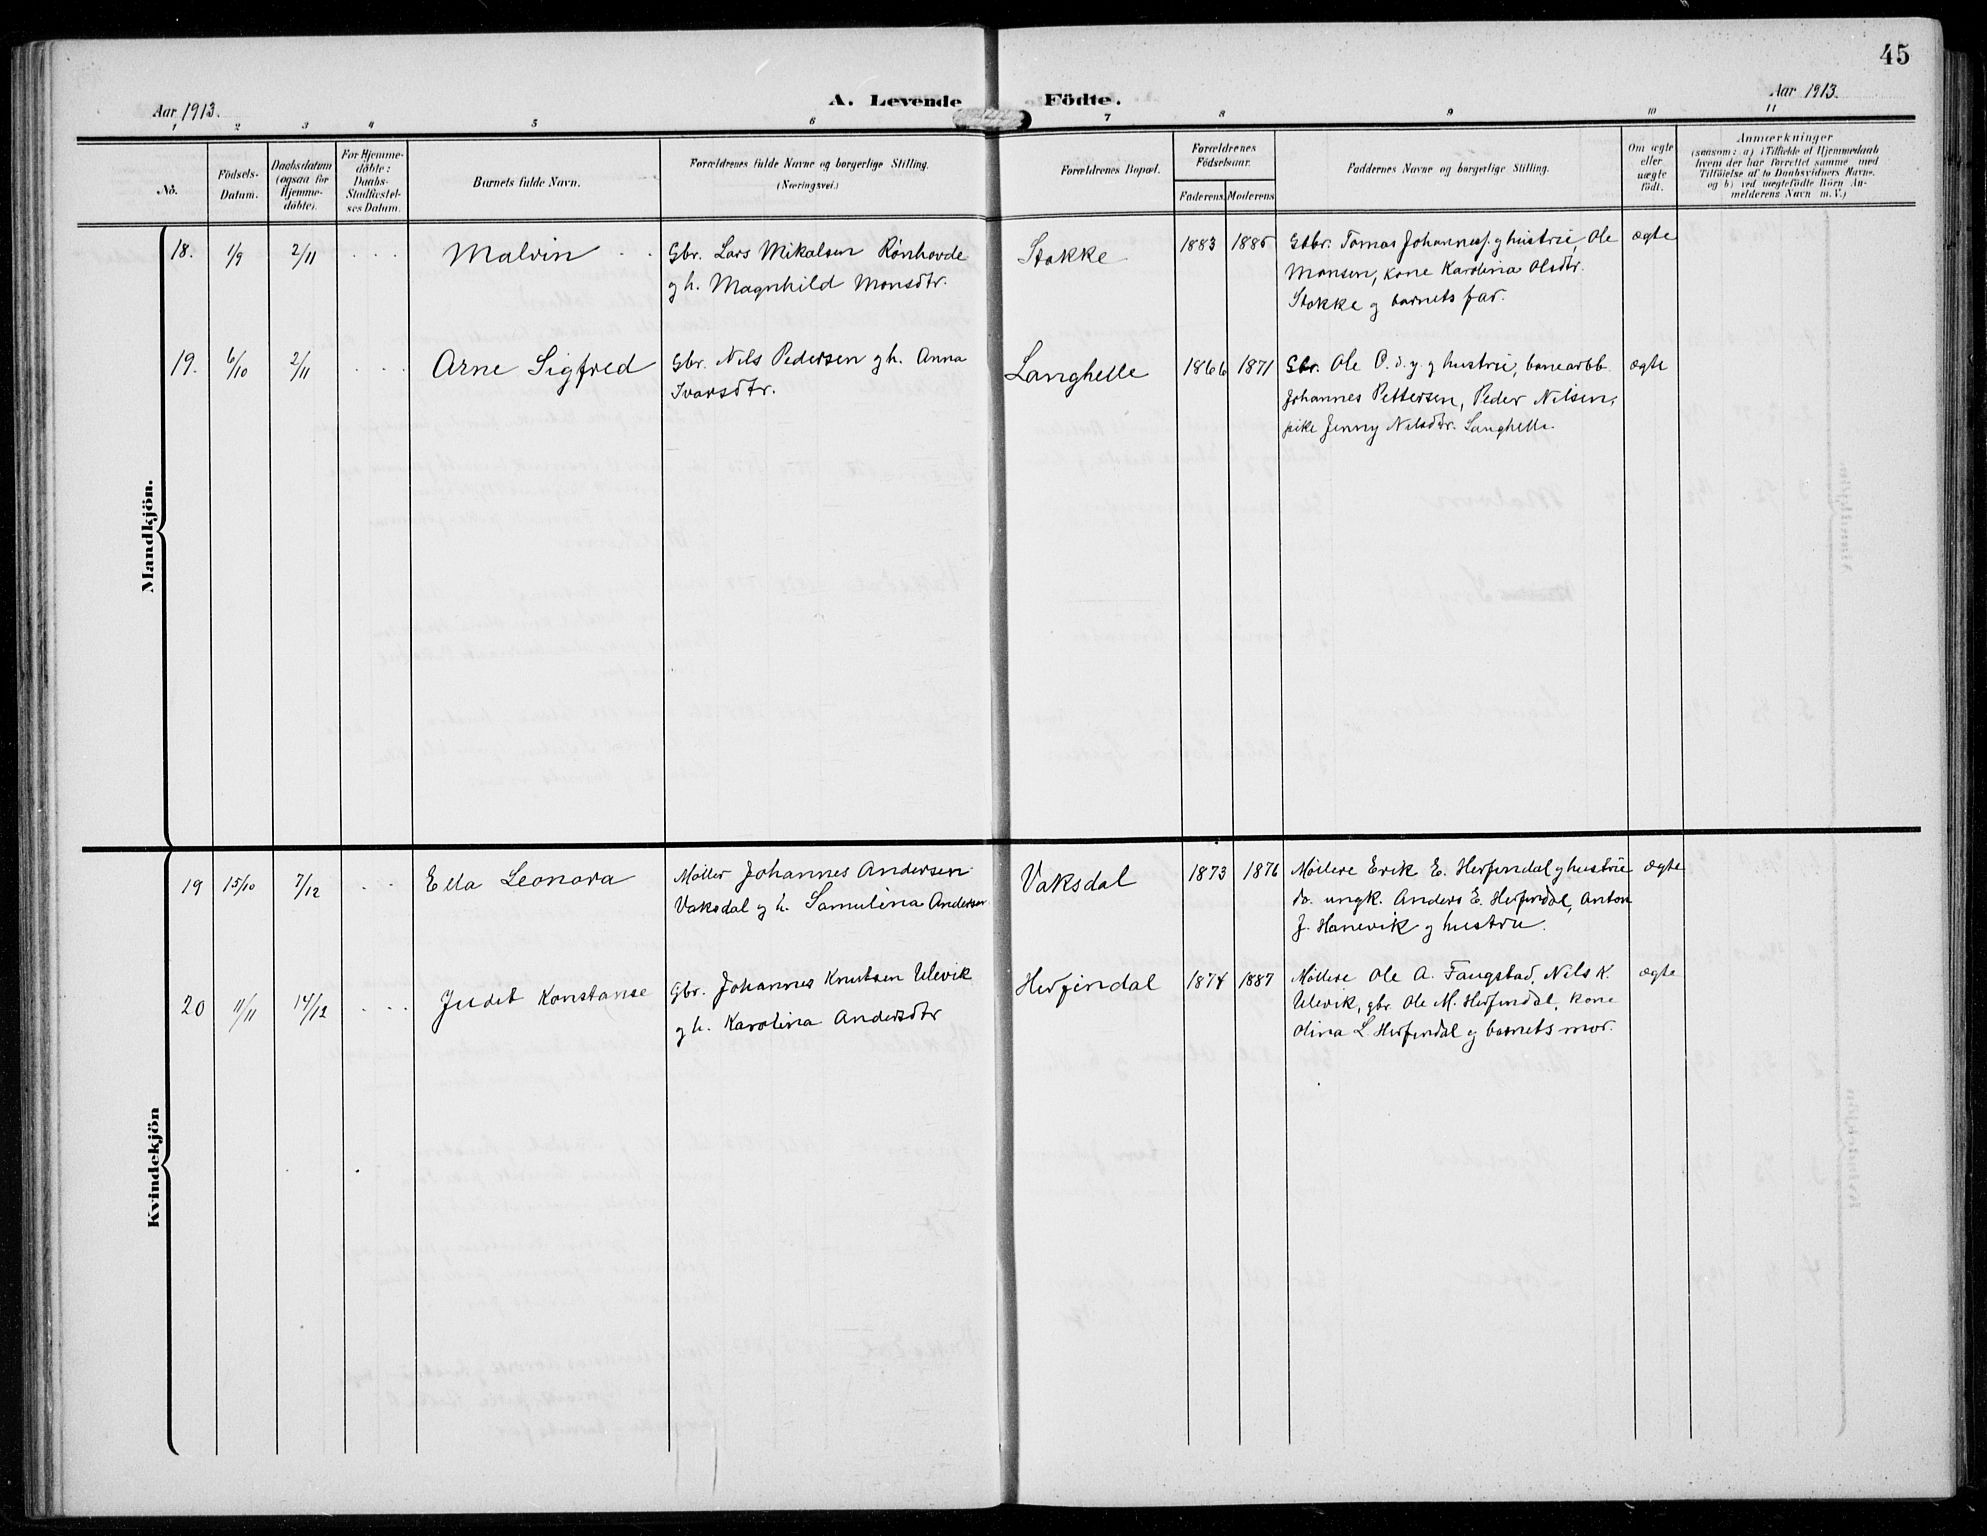 45
Aar 1913.
A. Levende
Födte.
Aar 1913.
1 2 3 4 5 6 7 8 9 10 11
No.
Födsels-
Datum.
Daabsdatum
(ogsaa for
Hjemme-
döbte).
For Hjemme-
döbte:
Daabs-
Stadfæstel-
ses Datum.
Barnets fulde Navn.
Forældrenes fulde Navne og borgerlige Stilling.
(Næringsvei.)
Forældrenes Bopæl.
Forældrenes
Födselsaar.
Faderens. Moderens
Faddernes Navne og borgerlige Stilling.
Om ægte
eller
uægte
födt.
Anmærkninger
(saasom: a) i Tilfælde af Hjemmedaab
hvem der har forrettet samme, med
Tilföielse af to Daabsvidners Navne,
og b) ved uægtefödte Börn An-
melderens Navn m. V.)
Mandkjön.
18. 1/9 2/11 Malvin
Gbr. Lars Mikalsen Rönhovde
og h. Magnhild Monsdtr.
Stokke 1883 1885
Gbr. Tomas Johannes. g hustrie, Ole
Monsen, kone Karolina Olsdtr.
Stokke g barnets far.
ægte
19. 6/10 2/11 Arne Sigfred
Gbr. Nils Pedersen g h. Anna
Ivarsdtr.
Langhelle 1866 1871
Gbr. Ole P. d. y. g hustrie, banearbb.
Johannes Pettersen, Peder Nilsen,
pike Jenny Nilsdtr. Langhelle.
ægte
Kvindekjön
19 15/10 7/12 Ella Leonora
Møller Johannes Andersen
Vaksdal g h. Samulina Andersen
Vaksdal 1873 1876
Møllere Erik E. Herfindal g hustrie
do. ungk. Anders E. Herfindal, Anton
J. Hanevik g hustru.
ægte
20 11/11 14/12 Judit Konstanse
Gbr. Johannes Knutsen Ulevik
g h. Karolina Andersdtr
Herfindal 1874 1887
Møllere Ole A. Faugstad, Nils K.
Ulevik, gbr. Ole M. Herfindal, kone
Olina L. Herfindal g barnets mor.
ægte